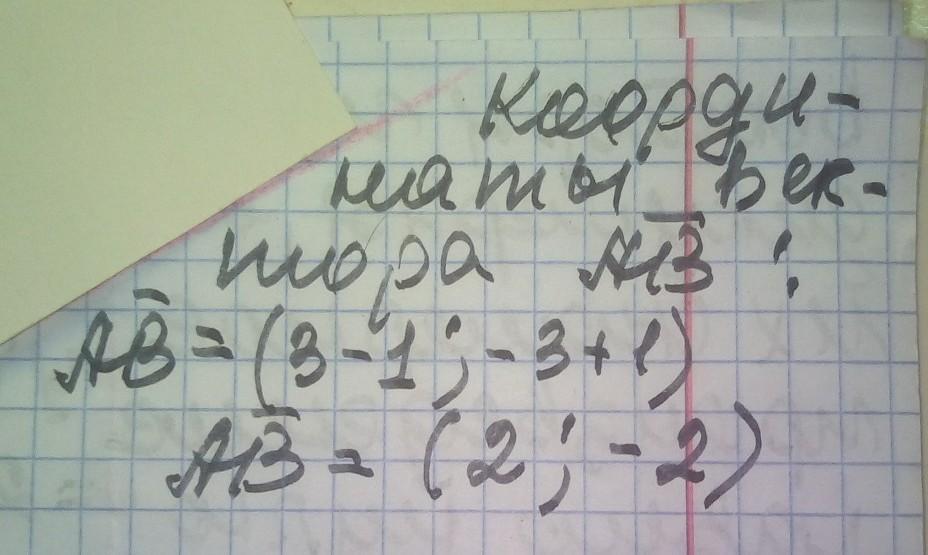 Коорди-
наты век-
тора AB̅ :
AB̅ = (3-1; -3+1)
AB̅ = (2; -2)